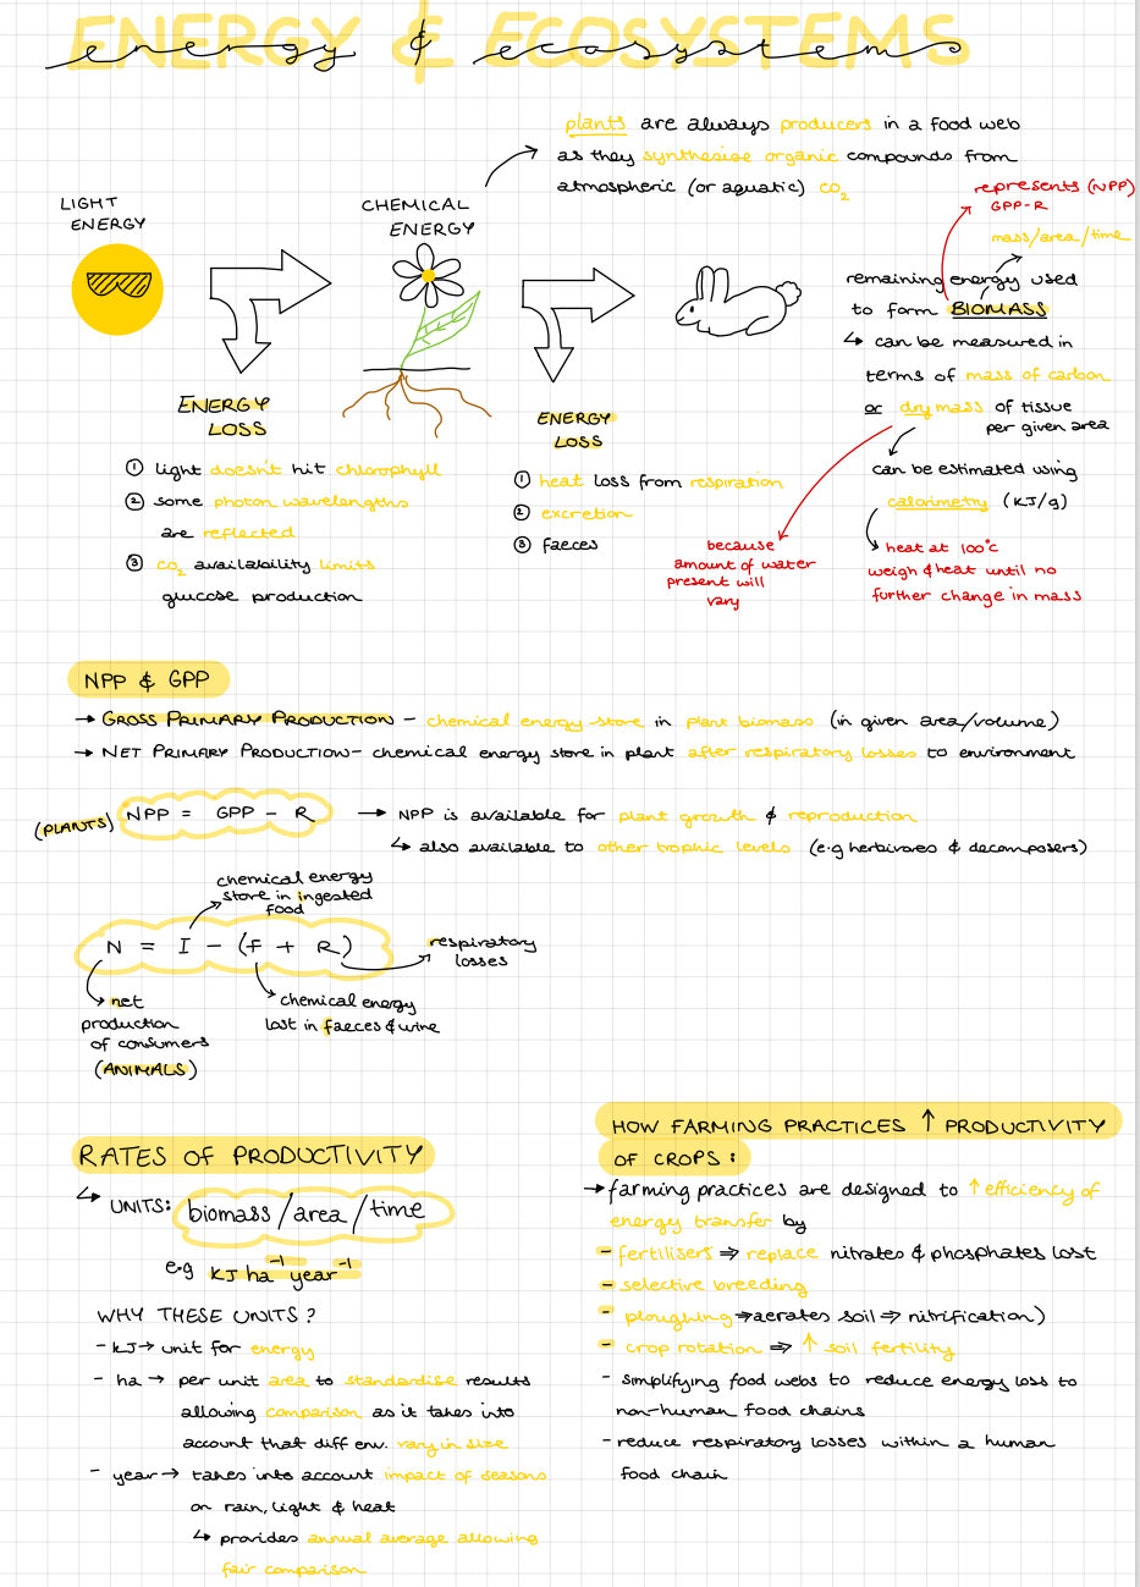 ENERGY & ECOSYSTEMS
energy & ecosystems
plants are always producers in a food web
as they synthesise organic compounds from
atmospheric (or aquatic) CO₂
LIGHT
ENERGY
CHEMICAL
ENERGY
represents (NPP)
GPP-R
mass/area/time
remaining energy used
to form BIOMASS
↳ can be measured in
terms of mass of carbon
or dry mass of tissue
per given area
can be estimated using
calorimetry (KJ/g)
heat at 100°C
weigh & heat until no
further change in mass
because
amount of water
present will
vary
ENERGY
LOSS
① light doesn't hit chlorophyll
② some photon wavelengths
are reflected
③ CO₂ availability limits
glucose production
ENERGY
LOSS
① heat loss from respiration
② excretion
③ faeces
NPP & GPP
→ GROSS PRIMARY PRODUCTION - chemical energy store in plant biomass (in given area/volume)
→ NET PRIMARY PRODUCTION - chemical energy store in plant after respiratory losses to environment
(PLANTS) NPP = GPP - R → NPP is available for plant growth & reproduction
↳ also available to other trophic levels (e.g herbivores & decomposers)
chemical energy
store in ingested
food
N = I - (F + R)
respiratory
losses
net
production
of consumers
(ANIMALS)
chemical energy
lost in faeces & urine
RATES OF PRODUCTIVITY
↳ UNITS: biomass/area/time
e.g KJ ha⁻¹ year⁻¹
WHY THESE UNITS?
- KJ → unit for energy
- ha → per unit area to standardise results
allowing comparison as it takes into
account that diff env. vary in size
- year → takes into account impact of seasons
on rain, light & heat
↳ provides annual average allowing
fair comparison
HOW FARMING PRACTICES ↑ PRODUCTIVITY
OF CROPS:
→ farming practices are designed to ↑ efficiency of
energy transfer by
- fertilisers ⇒ replace nitrates & phosphates lost
- selective breeding
- ploughing ⇒ aerates soil ⇒ nitrification)
- crop rotation ⇒ ↑ soil fertility
- simplifying food webs to reduce energy loss to
non-human food chains
- reduce respiratory losses within a human
food chain